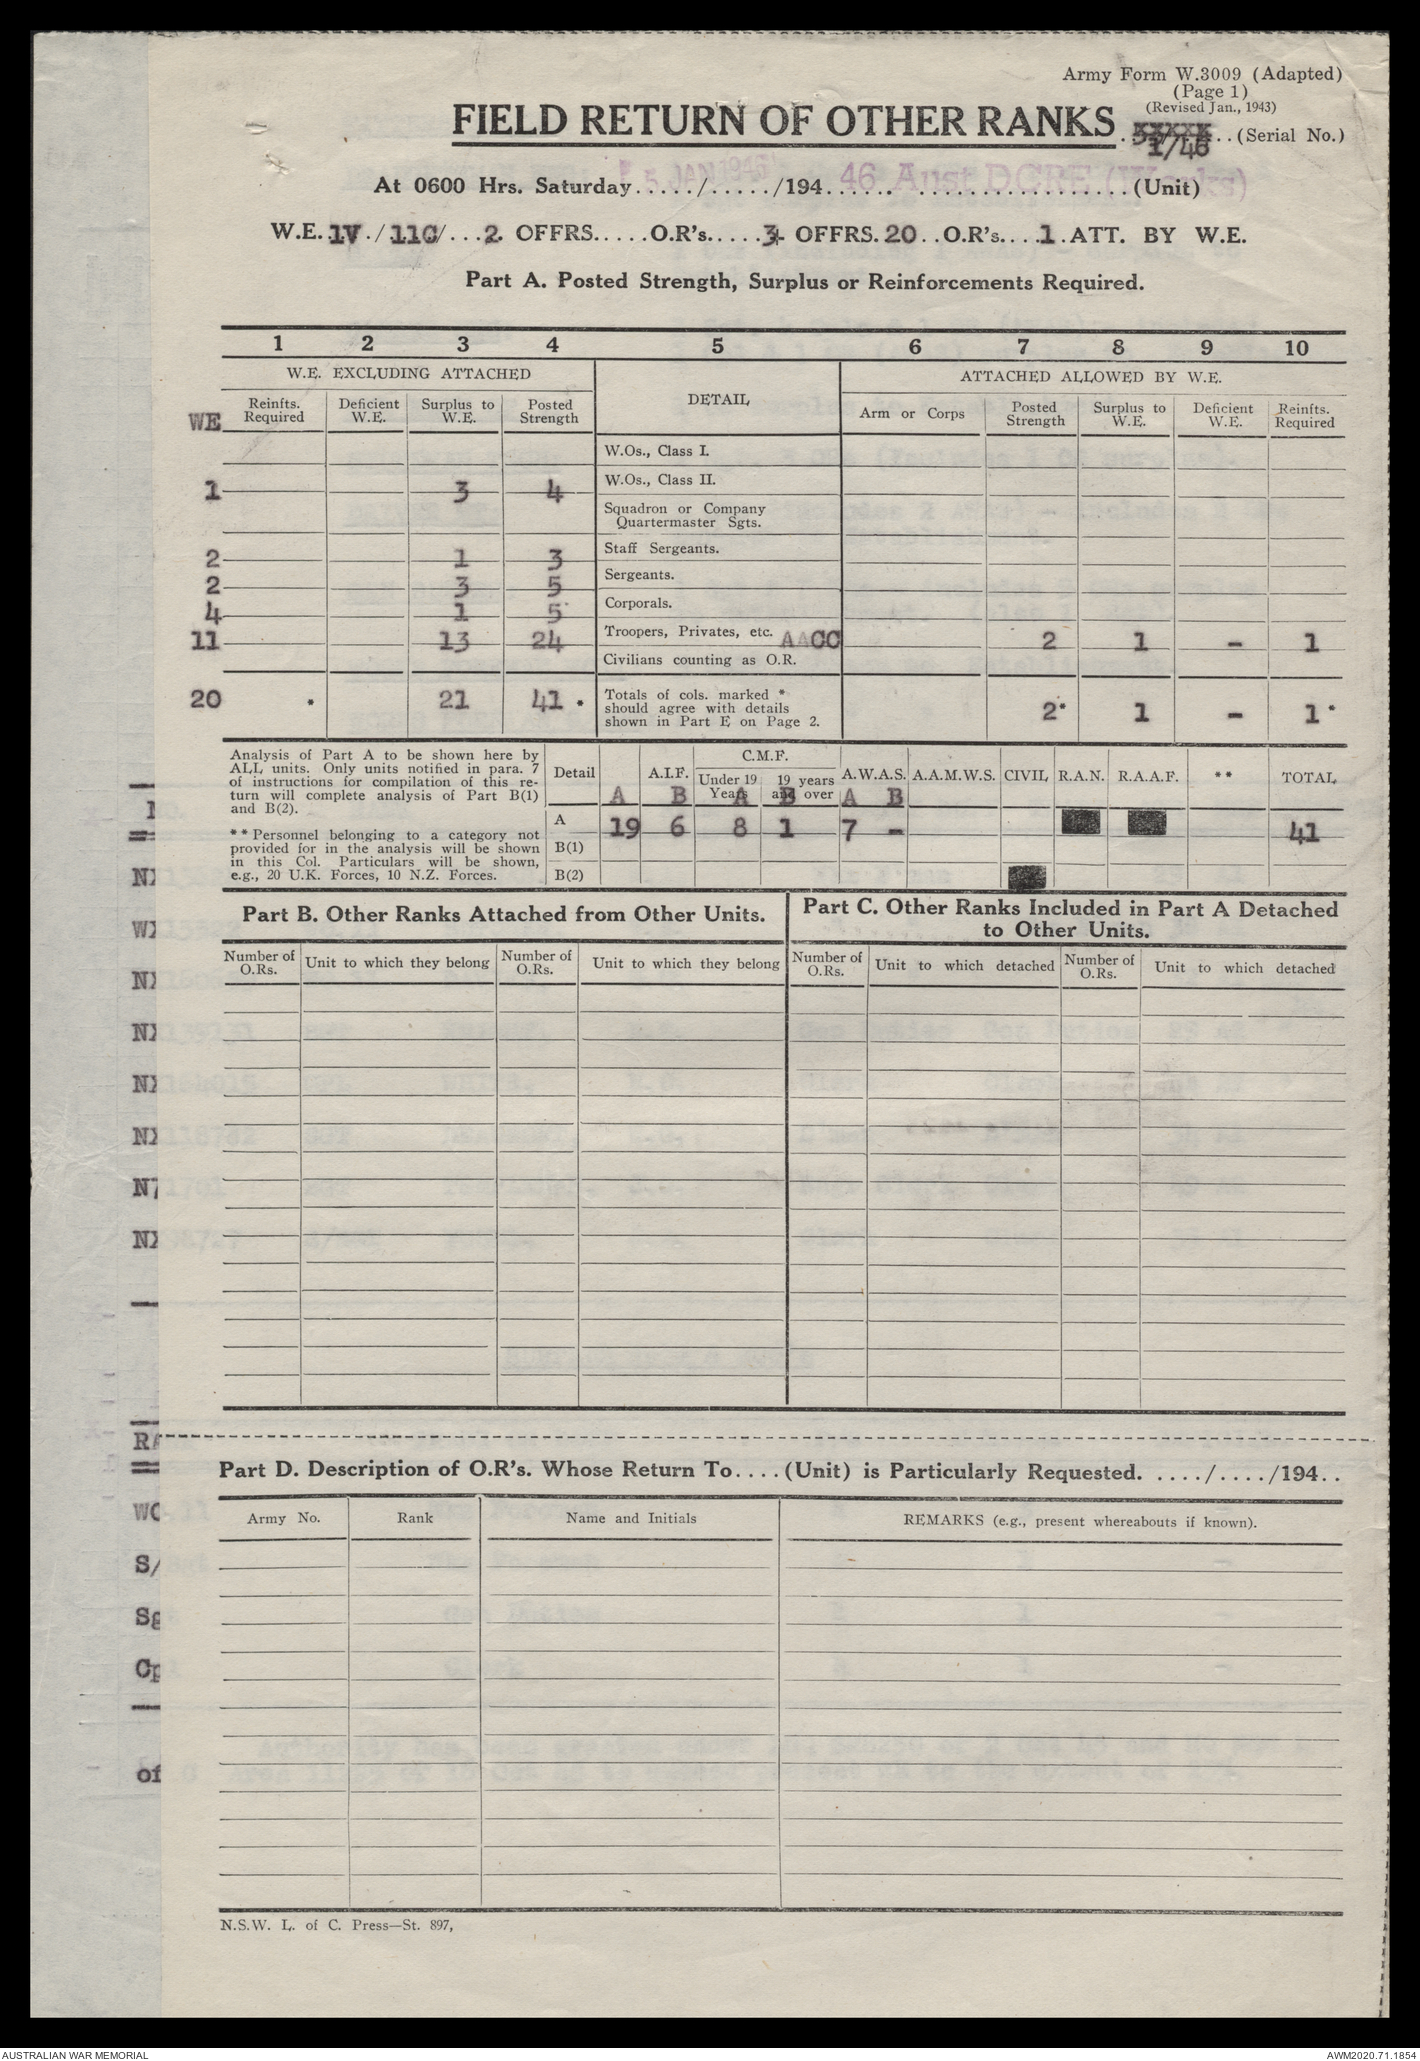 Army Form W.3009 (Adapted)
(Page 1)
(Revised Jan., 1943)
FIELD RETURN OF OTHER RANKS
1/46 (Serial No.)
At 0600 Hrs. Saturday...../...../194...... .................(Unit)
5 JAN 1946 46 Aust DCRE (Works)
W.E. 1V./11C/...2. OFFRS.....O.R's.....3. OFFRS. 20..O.R's....1.ATT. BY W.E.
Part A. Posted Strength, Surplus or Reinforcements Required.
1 2 3 4 5 6 7 8 9 10
W.E. EXCLUDING ATTACHED DETAIL ATTACHED ALLOWED BY W.E.
WE Reinfts. Required Deficient W.E. Surplus to W.E. Posted Strength Arm or Corps Posted Strength Surplus to W.E. Deficient W.E. Reinfts. Required
W.Os., Class I.
1 3 4 W.Os., Class II.
Squadron or Company
Quartermaster Sgts.
2 1 3 Staff Sergeants.
2 3 5 Sergeants.
4 1 5 Corporals.
11 13 24 Troopers, Privates, etc. AACC 2 1 - 1
Civilians counting as O.R.
20 * 21 41 * Totals of cols. marked *
should agree with details
shown in Part E on Page 2. 2* 1 - 1*
Analysis of Part A to be shown here by
ALL units. Only units notified in para. 7
of instructions for compilation of this re-
turn will complete analysis of Part B(1)
and B(2).
** Personnel belonging to a category not
provided for in the analysis will be shown
in this Col. Particulars will be shown,
e.g., 20 U.K. Forces, 10 N.Z. Forces.
Detail A.I.F. C.M.F. Under 19 Years 19 years and over A.W.A.S. A.A.M.W.S. CIVIL R.A.N. R.A.A.F. ** TOTAL
A B A B A B
A 19 6 8 1 7 - 41
B(1)
B(2)
Part B. Other Ranks Attached from Other Units.
Part C. Other Ranks Included in Part A Detached
to Other Units.
Number of O.Rs. Unit to which they belong Number of O.Rs. Unit to which they belong Number of O.Rs. Unit to which detached Number of O.Rs. Unit to which detached
NX
WX
NX
NX
NX
NX
N7
NX
RA
Part D. Description of O.R's. Whose Return To....(Unit) is Particularly Requested. ..../..../194..
Army No. Rank Name and Initials REMARKS (e.g., present whereabouts if known).
WO
S/
Sg
Cp
of
N.S.W. L. of C. Press—St. 897,
AUSTRALIAN WAR MEMORIAL
AWM2020.71.1854